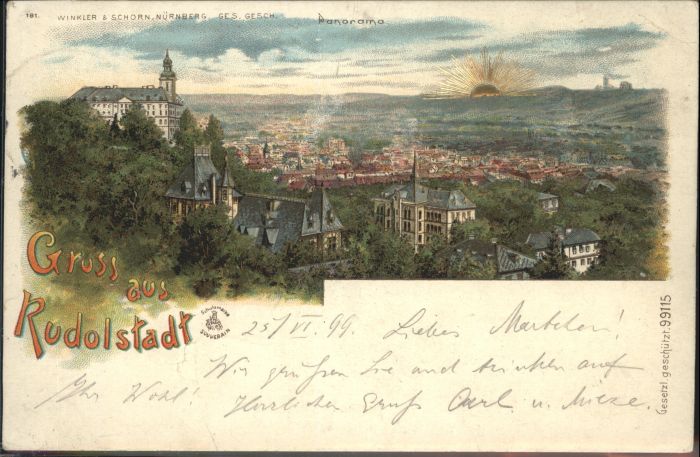 181. WINKLER & SCHORN, NÜRNBERG GES. GESCH.
Panorama
Gruss
aus
Rudolstadt
Schutzmarke
SOUVERAIN
25/VI. 99. Liebes Martchen!
Wir grüßen Sie und trinken auf
Ihr Wohl! Herzlichen Gruß Carl u. Mieze.
Gesetzl. geschützt. 99115